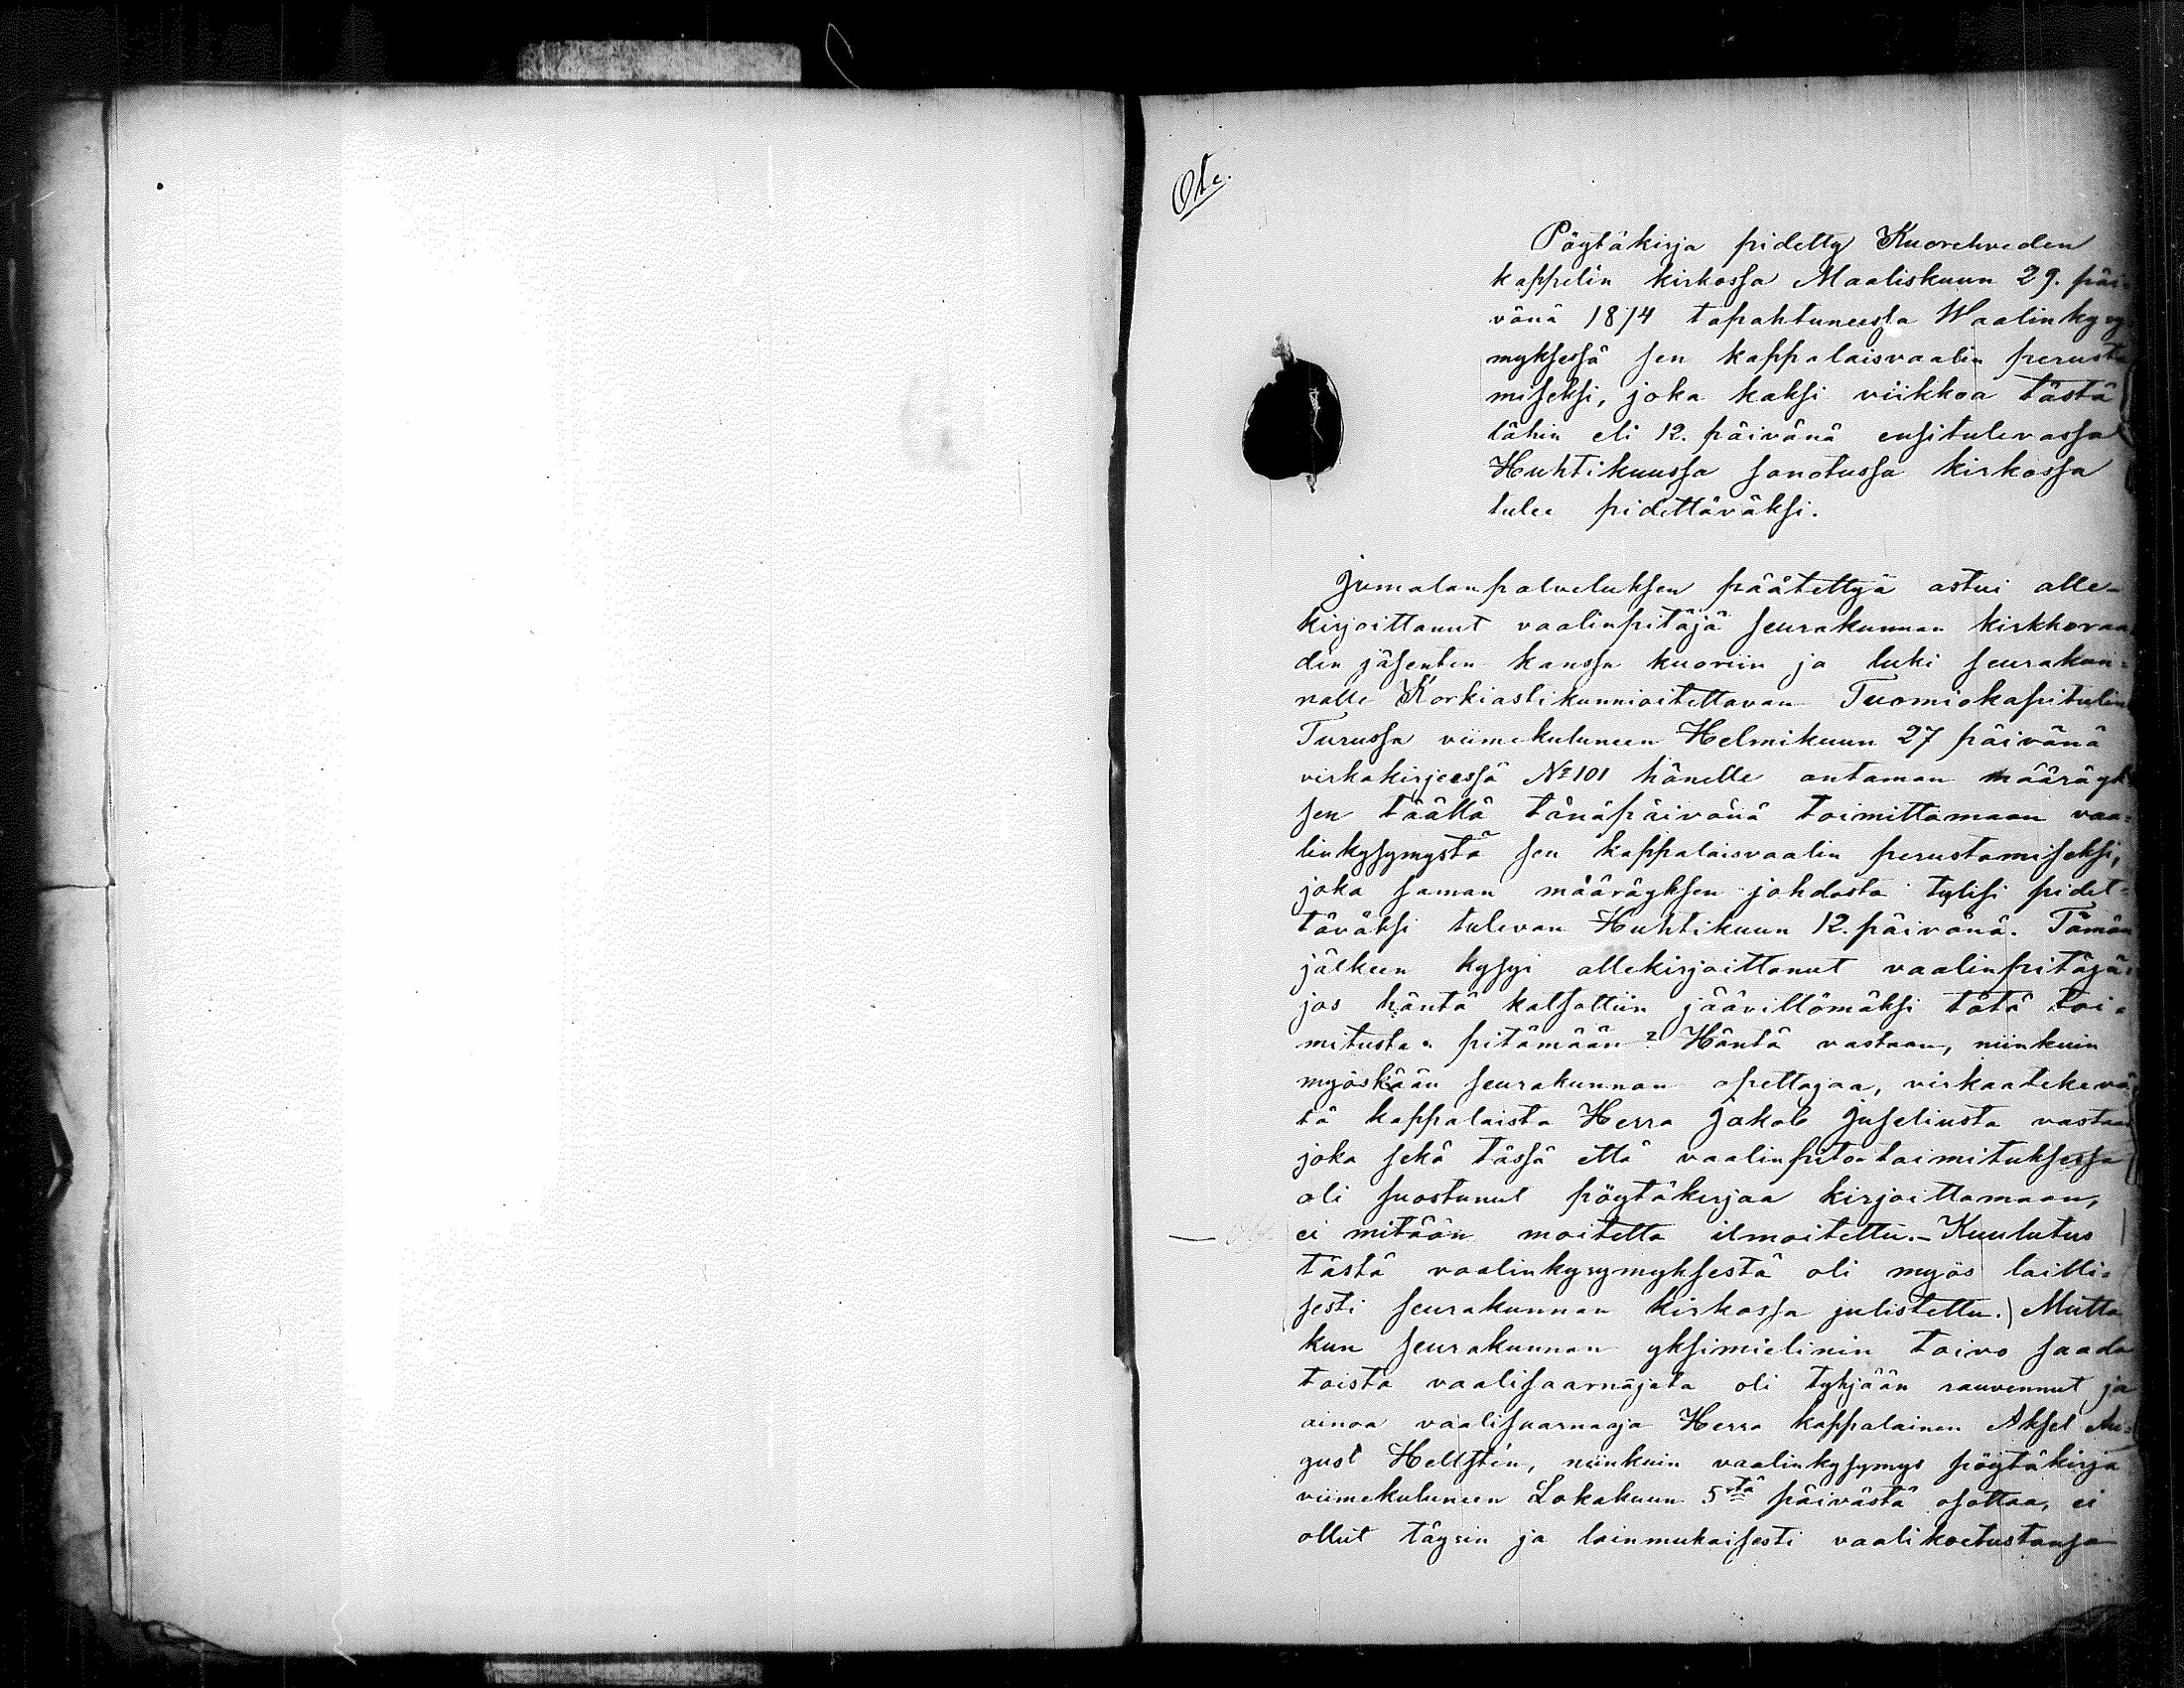 Ote.
Pöytäkirja pidetty Kuorehveden
kappelin kirkossa Maaliskuun 29. päi-
vänä 1874 tapahtuneesta Waalinkysy-
myksessä sen kappalaisvaalin perusta
miseksi, joka kaksi viikkoa tästä
lähin eli 12. päivänä ensitulevassa
Huhtikuussa sanotussa kirkossa
tulee pidettäväksi.
Jumalanpalveluksen päätettyä astui alle-
kirjoittanut vaalinpitäjä seurakunnan kirkkoraa
din jäsenten kanssa kuoriin ja luki seurakun-
nalle Korkiastikunnioitettavan Tuomiokapitulin
Turussa viimekuluneen Helmikuun 27 päivänä
virkakirjeessä No 101 hänelle antaman määräyk-
sen täällä tänäpäivänä toimittamaan vaa-
linkysymystä sen kappalaisvaalin perustamiseksi,
joka saman määräyksen johdosta tulisi pidet-
täväksi tulevan Huhtikuun 12. päivänä. Tämän
jälkeen kysyi allekirjoittanut vaalinpitäjä:
jos häntä katsottiin jäävittömäksi tätä toi-
mitusta pitämään? Häntä vastaan, niinkuin
myöskään seurakunnan opettajaa, virkaatekevä-
tä kappalaista Herra Jakob Juseliusta vastaan
joka sekä tässä että vaalinpitotoimituksessa
oli suostunut pöytäkirjaa kirjoittamaan,
ei mitään moitetta ilmoitettu. - Kuulutus
tästä vaalinkysymyksestä oli myös lailli-
sesti seurakunnan kirkossa julistettu.) Mutta
kun seurakunnan yksimielinin toivo saada
toista vaalisaarnajata oli tyhjään rauvennut ja
ainoa vaalisaarnaaja Herra kappalainen Aksel Au-
gust Hellstén, niinkuin vaalinkysymys pöytäkirja
viimekuluneen Lokakuun 5stä päivästä osottaa, ei
ollut täysin ja lainmukaisesti vaalikoetustansa